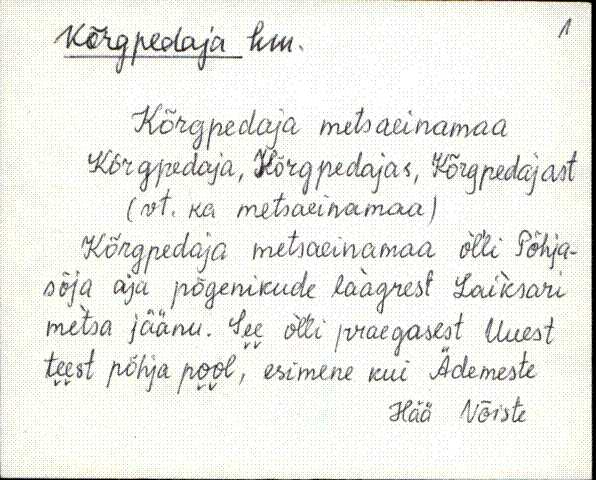 Kõrgpedaja hm.
1
Kõrgpedaja metsaeinamaa
Kõrgpedaja, Kõrgpedajas, Kõrgpedajast
(vt. ka metsaeinamaa)
Kõrgpedaja metsaeinamaa òlli Põhja-
sõja aja põgenikude laàgrest Laiksari
metsa jäänu. See òlli praegasest Uuest
teest põhja pool, esimene kui Ädemeste
Hää Võiste